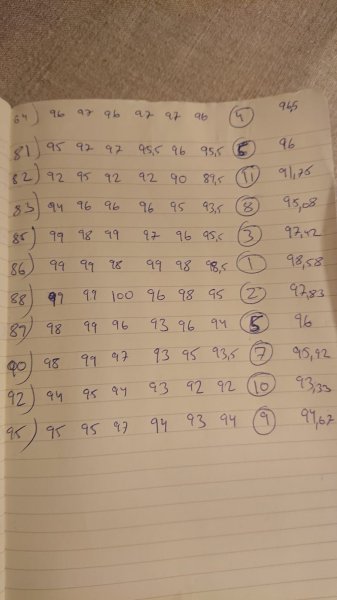 64) 96 97 96 97 97 96 4 96,5
81) 95 97 97 95,5 96 95,5 5 96
82) 92 95 92 92 90 89,5 11 91,75
83) 94 96 96 96 95 93,5 8 95,08
85) 99 98 99 97 96 95,5 3 97,42
86) 99 99 98 99 98 98,5 1 98,58
88) 99 99 100 96 98 95 2 97,83
89) 98 99 96 93 96 94 5 96
90) 98 99 97 93 95 93,5 7 95,92
92) 94 95 94 93 92 92 10 93,33
95) 95 95 97 94 93 94 9 94,67